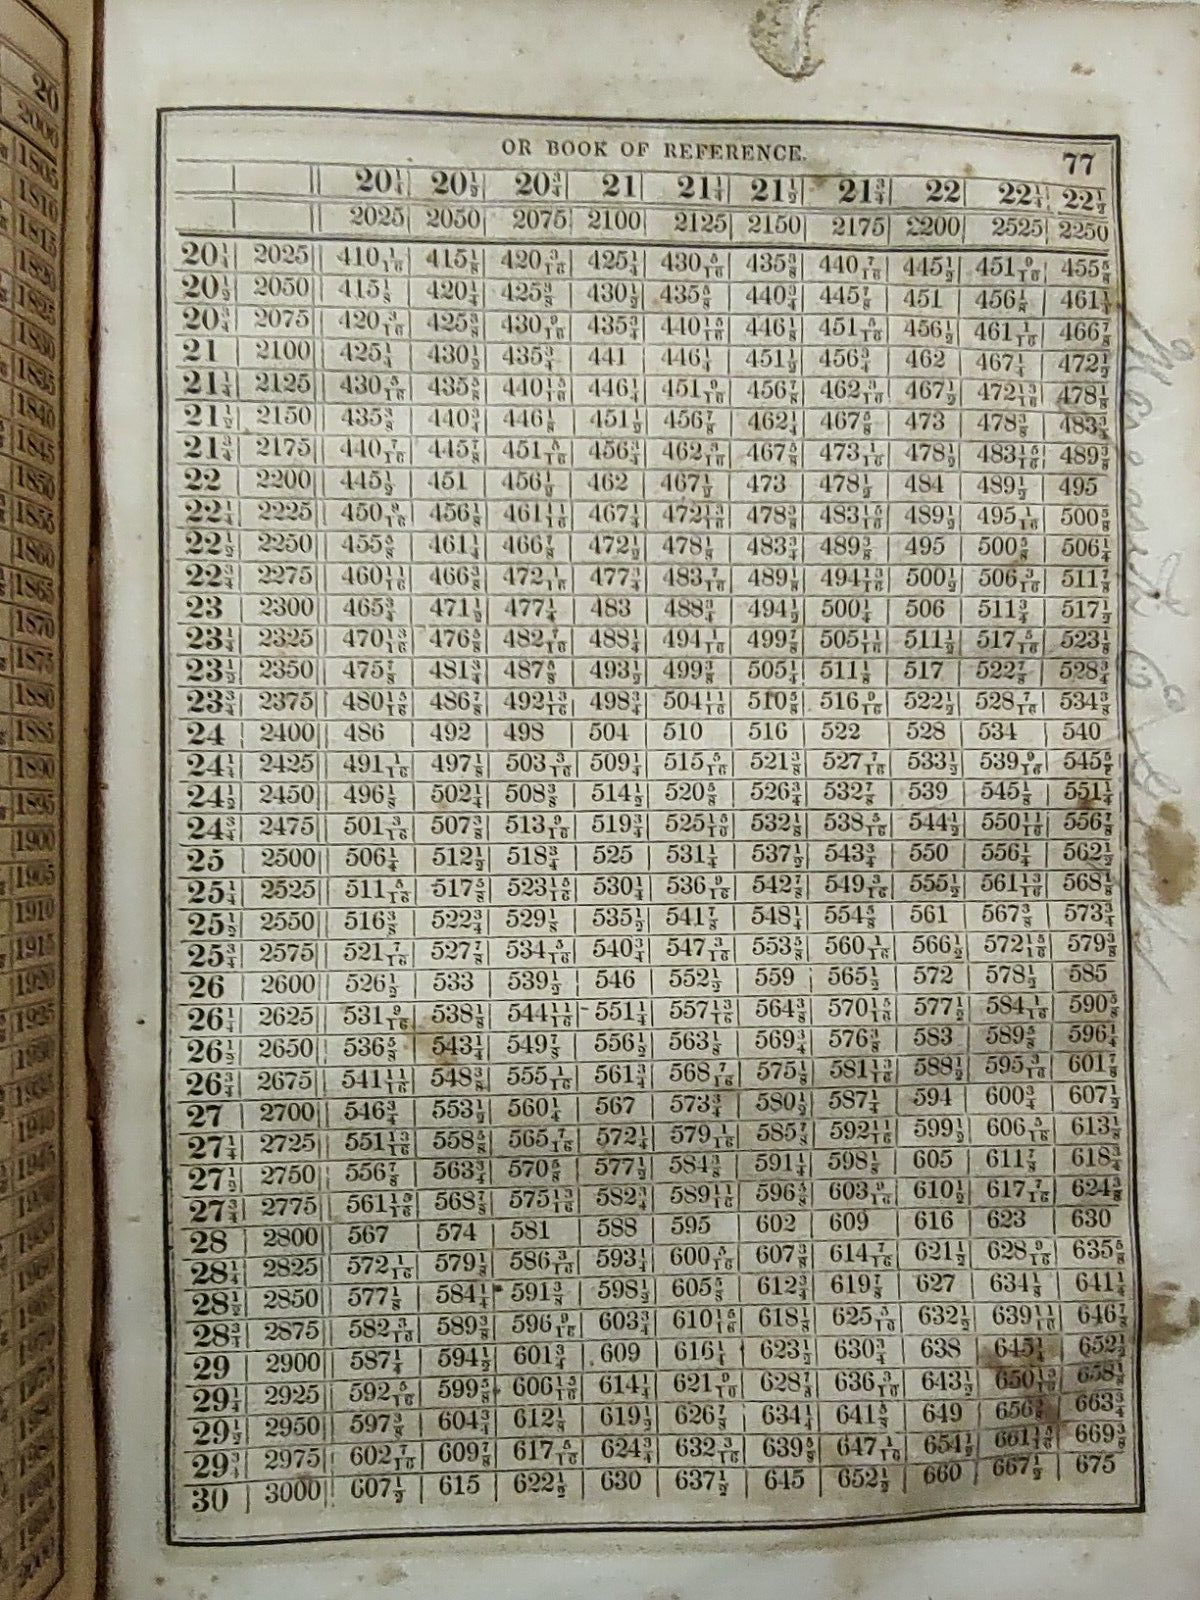 20
2000
1805
1810
1815
1820
1825
1830
1835
1840
1845
1850
1855
1860
1865
1870
1875
1880
1885
1890
1895
1900
1905
1910
1915
1920
1925
OR BOOK OF REFERENCE. 77
20¼ 20½ 20¾ 21 21¼ 21½ 21¾ 22 22¼ 22½
2025 2050 2075 2100 2125 2150 2175 2200 2525 2250
20¼ 2025 410 1/16 415⅛ 420 3/16 425¼ 430 5/16 435⅜ 440 7/16 445½ 451 9/16 455⅝
20½ 2050 415⅛ 420¼ 425⅜ 430½ 435⅝ 440¾ 445⅞ 451 456⅛ 461¼
20¾ 2075 420 3/16 425⅜ 430 9/16 435¾ 440 15/16 446⅛ 451 5/16 456½ 461 1/16 466⅞
21 2100 425¼ 430½ 435¾ 441 446¼ 451½ 456¾ 462 467¼ 472½
21¼ 2125 430 5/16 435⅝ 440 15/16 446¼ 451 9/16 456⅞ 462 3/16 467½ 472 13/16 478⅛
21½ 2150 435⅜ 440¾ 446⅛ 451½ 456⅞ 462¼ 467⅝ 473 478⅜ 483¾
21¾ 2175 440 7/16 445⅞ 451 5/16 456¾ 462 3/16 467⅝ 473 1/16 478½ 483 15/16 489⅜
22 2200 445½ 451 456½ 462 467½ 473 478½ 484 489½ 495
22¼ 2225 450 9/16 456⅛ 461 11/16 467¼ 472 13/16 478⅜ 483 15/16 489½ 495 1/16 500⅝
22½ 2250 455⅝ 461¼ 466⅞ 472½ 478⅛ 483¾ 489⅜ 495 500⅝ 506¼
22¾ 2275 460 11/16 466⅜ 472 1/16 477¾ 483 7/16 489⅛ 494 13/16 500½ 506 3/16 511⅞
23 2300 465¾ 471½ 477¼ 483 488¾ 494½ 500¼ 506 511¾ 517½
23¼ 2325 470 13/16 476⅝ 482 7/16 488¼ 494 1/16 499⅞ 505 11/16 511½ 517 5/16 523⅛
23½ 2350 475⅞ 481¾ 487⅝ 493½ 499⅜ 505¼ 511⅛ 517 522⅞ 528¾
23¾ 2375 480 15/16 486⅞ 492 13/16 498¾ 504 11/16 510⅝ 516 9/16 522½ 528 7/16 534⅜
24 2400 486 492 498 504 510 516 522 528 534 540
24¼ 2425 491 1/16 497⅛ 503 3/16 509¼ 515 5/16 521⅜ 527 7/16 533½ 539 9/16 545⅝
24½ 2450 496⅛ 502¼ 508⅜ 514½ 520⅝ 526¾ 532⅞ 539 545⅛ 551¼
24¾ 2475 501 3/16 507⅜ 513 9/16 519¾ 525 15/16 532⅛ 538 5/16 544½ 550 11/16 556⅞
25 2500 506¼ 512½ 518¾ 525 531¼ 537½ 543¾ 550 556¼ 562½
25¼ 2525 511 5/16 517⅝ 523 15/16 530¼ 536 9/16 542⅞ 549 3/16 555½ 561 13/16 568⅛
25½ 2550 516⅜ 522¾ 529⅛ 535½ 541⅞ 548¼ 554⅝ 561 567⅜ 573¾
25¾ 2575 521 7/16 527⅞ 534 5/16 540¾ 547 3/16 553⅝ 560 1/16 566½ 572 15/16 579⅜
26 2600 526½ 533 539½ 546 552½ 559 565½ 572 578½ 585
26¼ 2625 531 9/16 538⅛ 544 11/16 551¼ 557 13/16 564⅜ 570 15/16 577½ 584 1/16 590⅝
26½ 2650 536⅝ 543¼ 549⅞ 556½ 563⅛ 569¾ 576⅜ 583 589⅝ 596¼
26¾ 2675 541 11/16 548⅜ 555 1/16 561¾ 568 7/16 575⅛ 581 13/16 588½ 595 3/16 601⅞
27 2700 546¾ 553½ 560¼ 567 573¾ 580½ 587¼ 594 600¾ 607½
27¼ 2725 551 13/16 558⅝ 565 7/16 572¼ 579 1/16 585⅞ 592 11/16 599½ 606 5/16 613⅛
27½ 2750 556⅞ 563¾ 570⅝ 577½ 584⅜ 591¼ 598⅛ 605 611⅞ 618¾
27¾ 2775 561 15/16 568⅞ 575 13/16 582¾ 589 11/16 596⅝ 603 9/16 610½ 617 7/16 624⅜
28 2800 567 574 581 588 595 602 609 616 623 630
28¼ 2825 572 1/16 579⅛ 586 3/16 593¼ 600 5/16 607⅜ 614 7/16 621½ 628 9/16 635⅝
28½ 2850 577⅛ 584¼ 591⅜ 598½ 605⅝ 612¾ 619⅞ 627 634⅛ 641¼
28¾ 2875 582 3/16 589⅜ 596 9/16 603¾ 610 15/16 618⅛ 625 5/16 632½ 639 11/16 646⅞
29 2900 587¼ 594½ 601¾ 609 616¼ 623½ 630¾ 638 645¼ 652½
29¼ 2925 592 5/16 599⅝ 606 15/16 614¼ 621 9/16 628⅞ 636 3/16 643½ 650 13/16 658⅛
29½ 2950 597⅜ 604¾ 612⅛ 619½ 626⅞ 634¼ 641⅝ 649 656⅜ 663¾
29¾ 2975 602 7/16 609⅞ 617 5/16 624¾ 632 3/16 639⅝ 647 1/16 654½ 661 15/16 669⅜
30 3000 607½ 615 622½ 630 637½ 645 652½ 660 667½ 675